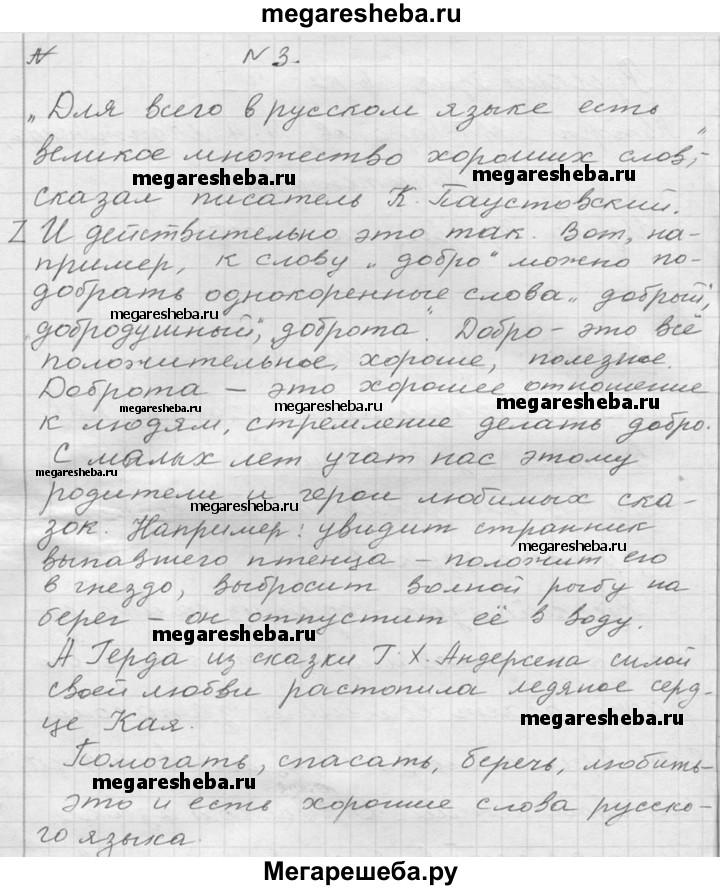 megaresheba.ru
N N 3.
„Для всего в русском языке есть
великое множество хороших слов", -
megaresheba.ru megaresheba.ru
сказал писатель К. Паустовский.
Z И действительно это так. Вот, на-
пример, к слову „добро" можно по-
добрать однокоренные слова „добрый",
megaresheba.ru
„добродушный", „доброта". Добро - это всё
положительное, хорошее, полезное.
Доброта - это хорошее отношение
megaresheba.ru megaresheba.ru megaresheba.ru
к людям, стремление делать добро.
С малых лет учат нас этому
megaresheba.ru
родители и герои любимых ска-
megaresheba.ru
зок. Например: увидит странник
выпавшего птенца - положит его
megaresheba.ru
в гнездо, выбросит волной рыбу на
берег - он отпустит её в воду.
megaresheba.ru
А Герда из сказки Г. Х. Андерсена силой
своей любви растопила ледяное серд-
це Кая.
megaresheba.ru
Помогать, спасать, беречь, любить -
megaresheba.ru
это и есть хорошие слова русско-
го языка.
Мегарешеба.ру